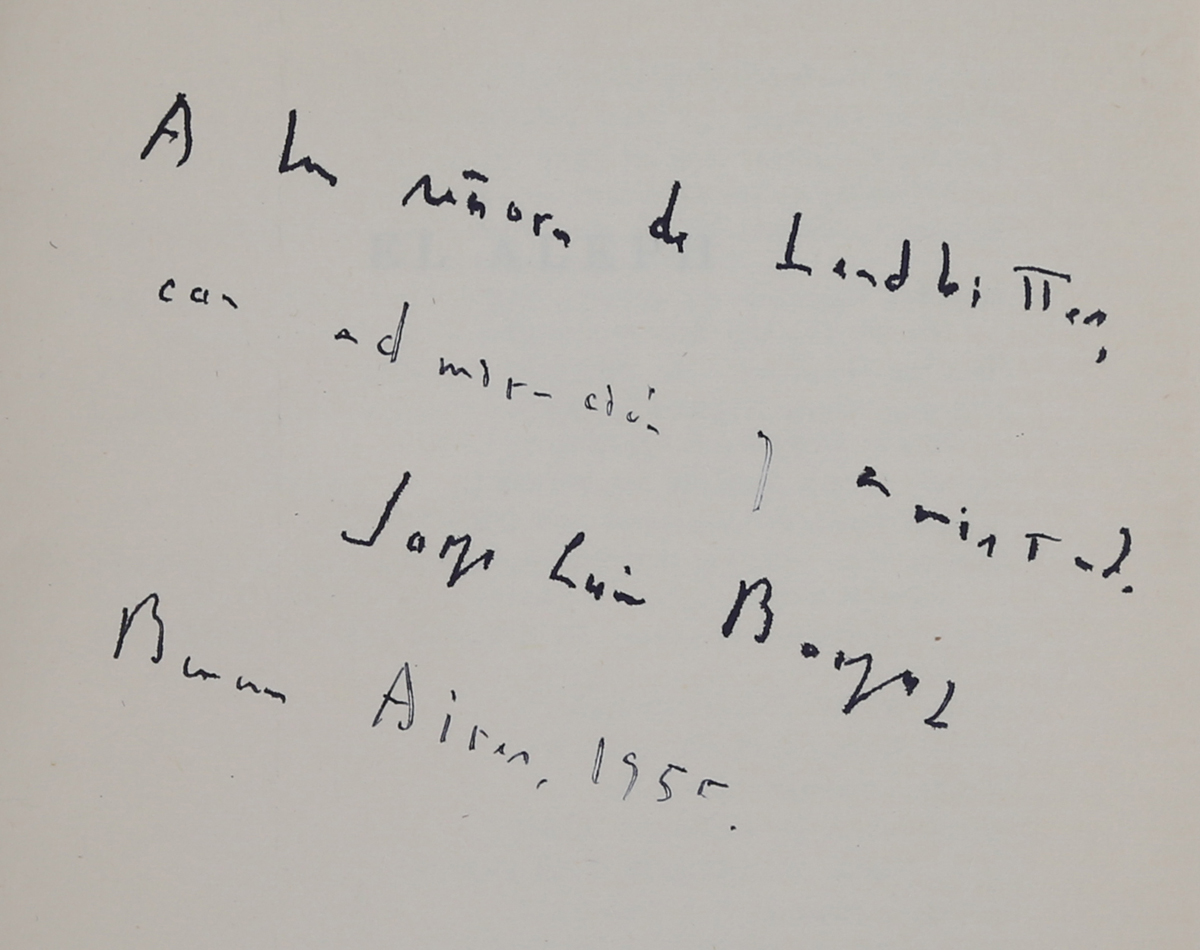 A la señora de Lendbitter,
con admiración y amistad.
Jorge Luis Borges
Buenos Aires, 1955.
EL ALEPH